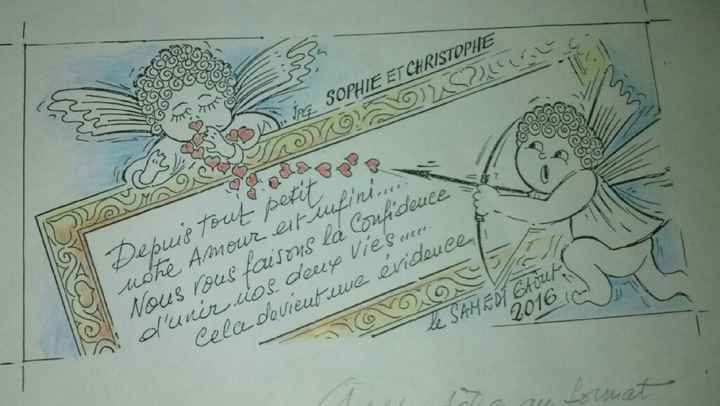 SOPHIE ET CHRISTOPHE
Depuis tout petit
notre Amour est infini.....
Nous vous faisons la Confidence
d'unir nos deux vies.....
Cela devient une évidence
le SAMEDI 6 Août
2016
au format